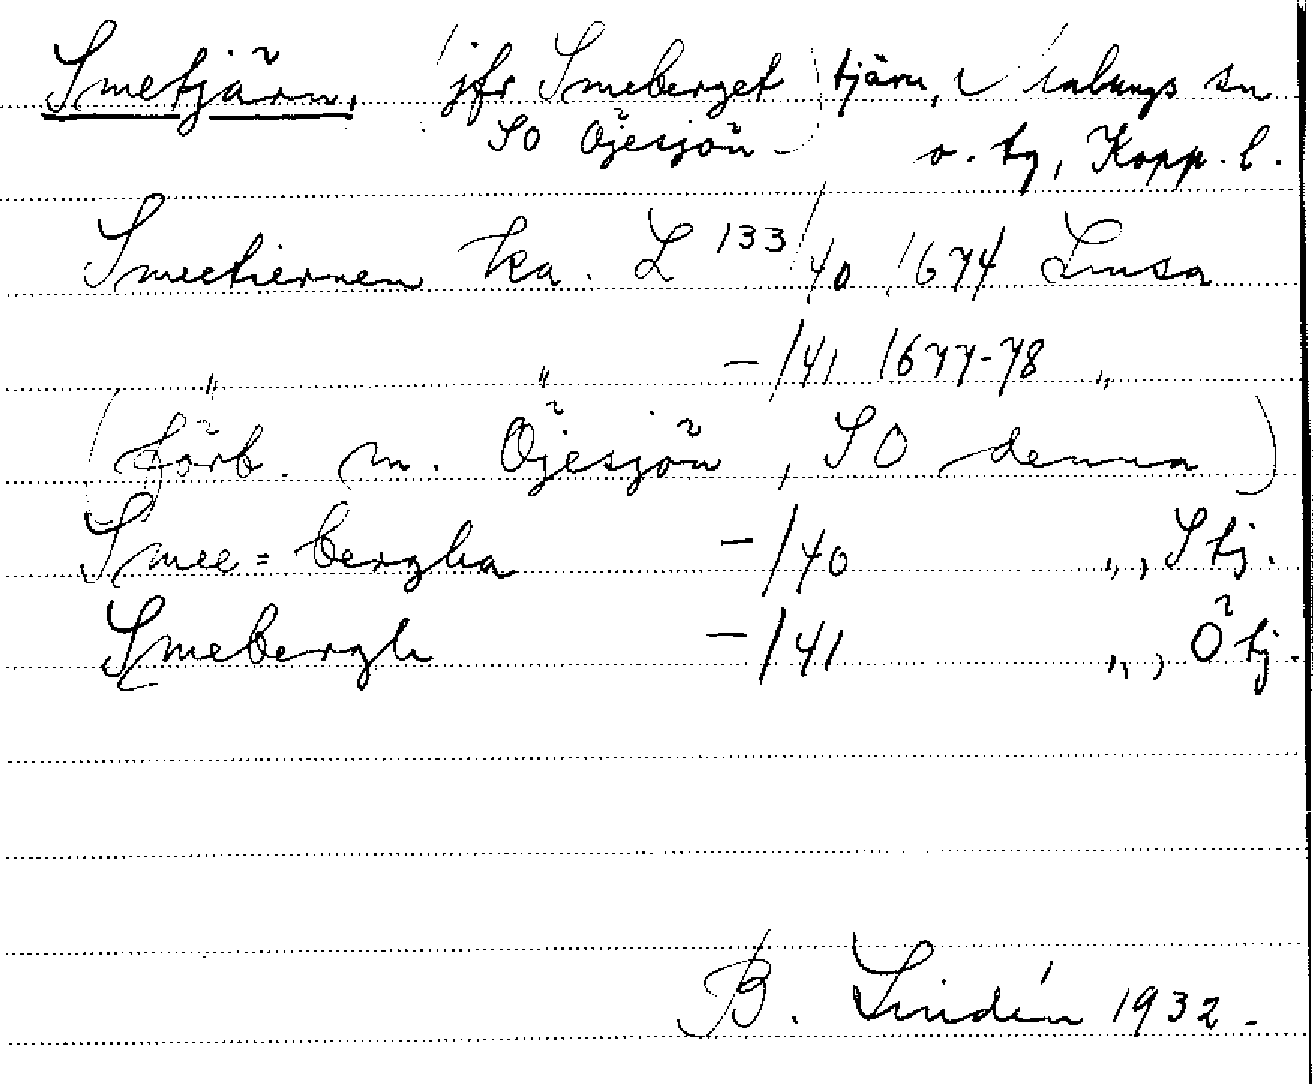 Smetjärn, (jfr Smeberget) tjärn, Malungs sn
SO Öjesjön- o. tg, Kopp. l.
Smeetiernen ka. L 133/40 1674 Limsa
" " -/41 1677-78 "
(förb. m. Öjesjön, SO denna)
Smee=bergha -/40 ", S tj.
Smebergh -/41 ", Ö tj.
B. Lindén 1932-